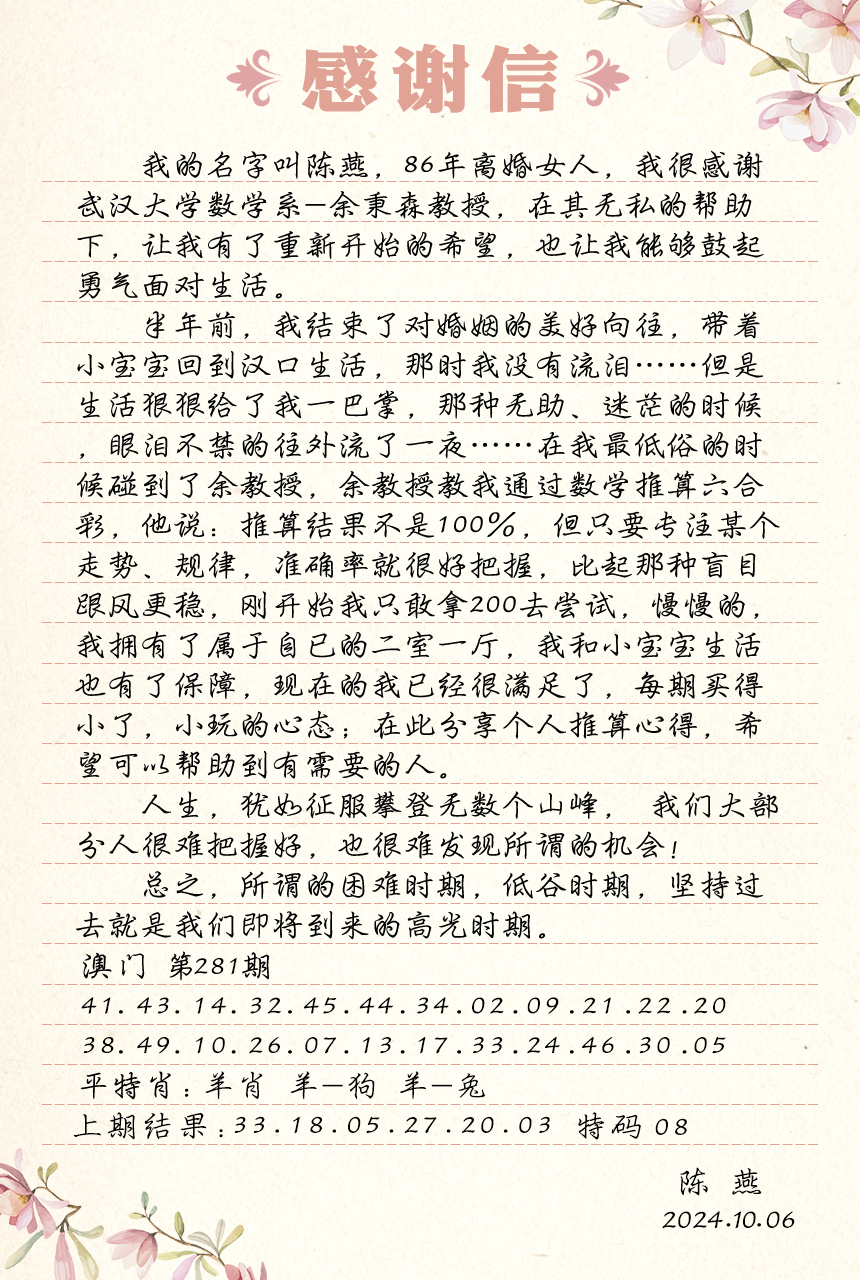 感谢信
我的名字叫陈燕，86年离婚女人，我很感谢
武汉大学数学系—余秉森教授，在其无私的帮助
下，让我有了重新开始的希望，也让我能够鼓起
勇气面对生活。
半年前，我结束了对婚姻的美好向往，带着
小宝宝回到汉口生活，那时我没有流泪……但是
生活狠狠给了我一巴掌，那种无助、迷茫的时候
，眼泪不禁的往外流了一夜……在我最低俗的时
候碰到了余教授，余教授教我通过数学推算六合
彩，他说：推算结果不是100%，但只要专注某个
走势、规律，准确率就很好把握，比起那种盲目
跟风更稳，刚开始我只敢拿200去尝试，慢慢的，
我拥有了属于自已的二室一厅，我和小宝宝生活
也有了保障，现在的我已经很满足了，每期买得
小了，小玩的心态；在此分享个人推算心得，希
望可以帮助到有需要的人。
人生，犹如征服攀登无数个山峰， 我们大部
分人很难把握好，也很难发现所谓的机会！
总之，所谓的困难时期，低谷时期，坚持过
去就是我们即将到来的高光时期。
澳门 第281期
41.43.14.32.45.44.34.02.09.21.22.20
38.49.10.26.07.13.17.33.24.46.30.05
平特肖：羊肖 羊—狗 羊—兔
上期结果：33.18.05.27.20.03 特码 08
陈 燕
2024.10.06